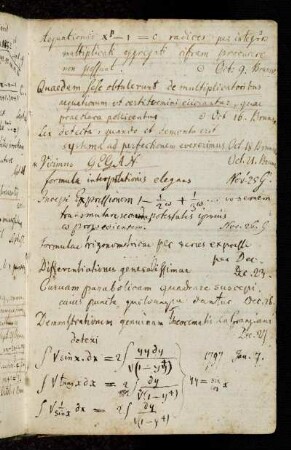 Aequationis x^p − 1 = 0 radices per integros
multiplicati aggregati cifram producere
non possunt. ☉ Oct. 9. Brunsv
Quaedam sese obtulerunt de multiplicatoribus
aequationum ut certi termini eiiciantur, quae
praeclara pollicentur ☉ Oct 16. Bruns
Lex detecta: quando et demonstrata erit
systema ad perfectionem evexerimus Oct. 18 Bruns
* Vicimus GEGAN. Oct. 21. Bruns
formula interpolationis elegans Nov. 25 G.
Incepi Expressionem 1 − 1/2^ω + 1/3^ω ... in seriem
transmutare secundum potestates ipsius
ω progredientem. Nov. 26. G
formulae trigonometricae per series express.
per Dec.
Differentiationes generalissimae Dec. 23.
Curvam parabolicam quadrare suscepi,
cuius puncta quotcunque dantur Dec. 26.
Demonstrationem genuinam Theorematis La Grangiani
detexi Dec. 27.
∫√sin x. dx = 2∫ yy dy/√(1−y⁴) 1797 Jan. 7.
∫√tang x dx = 2∫ dy/√(1−y⁴) } yy = sin/cos x
∫√(1/sin x) dx = 2∫ dy/√(1−y⁴)